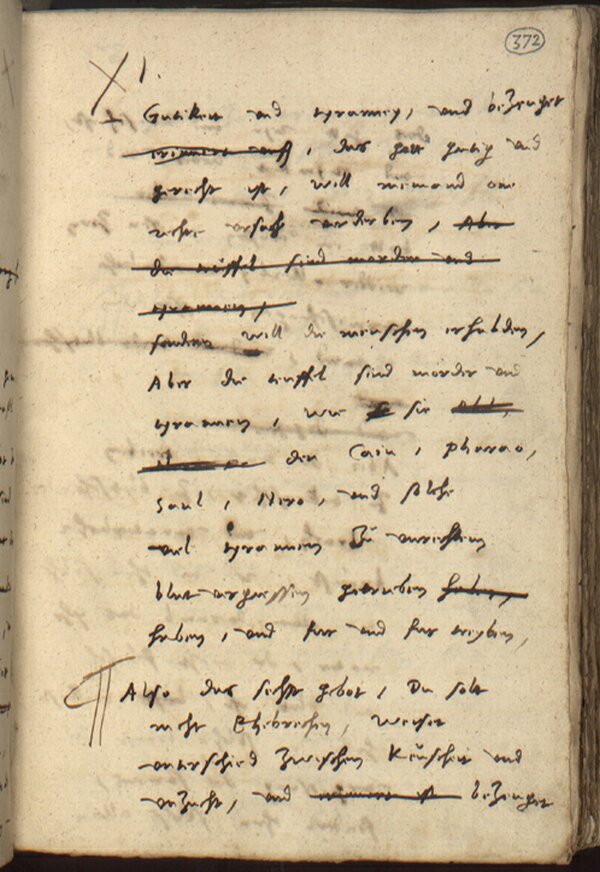 372
X 1.
+ Gutikeit vnd tyranney, vnd bezeuget
erinnert auff, das gott gutig vnd
gerecht ist, will niemand one
rechte vrsach verderben, Aber
die teuffel sind morder vnd
tyrannen,
sondern will die menschen erhalden,
Aber die teuffel sind mörder vnd
tyrannen, wie sie
den Cain, Pharao,
Saul, Nero, vnd solche
viel tyrannen zu vnrechtem
blutvergiessen getrieben haben,
haben, vnd fur vnd fur treyben,
¶ Also das sechst gebot, Du solt
nicht Ehebrechen, weiset
vnterschied zwischen Keuscheit vnd
vnzucht, vnd bezeuget